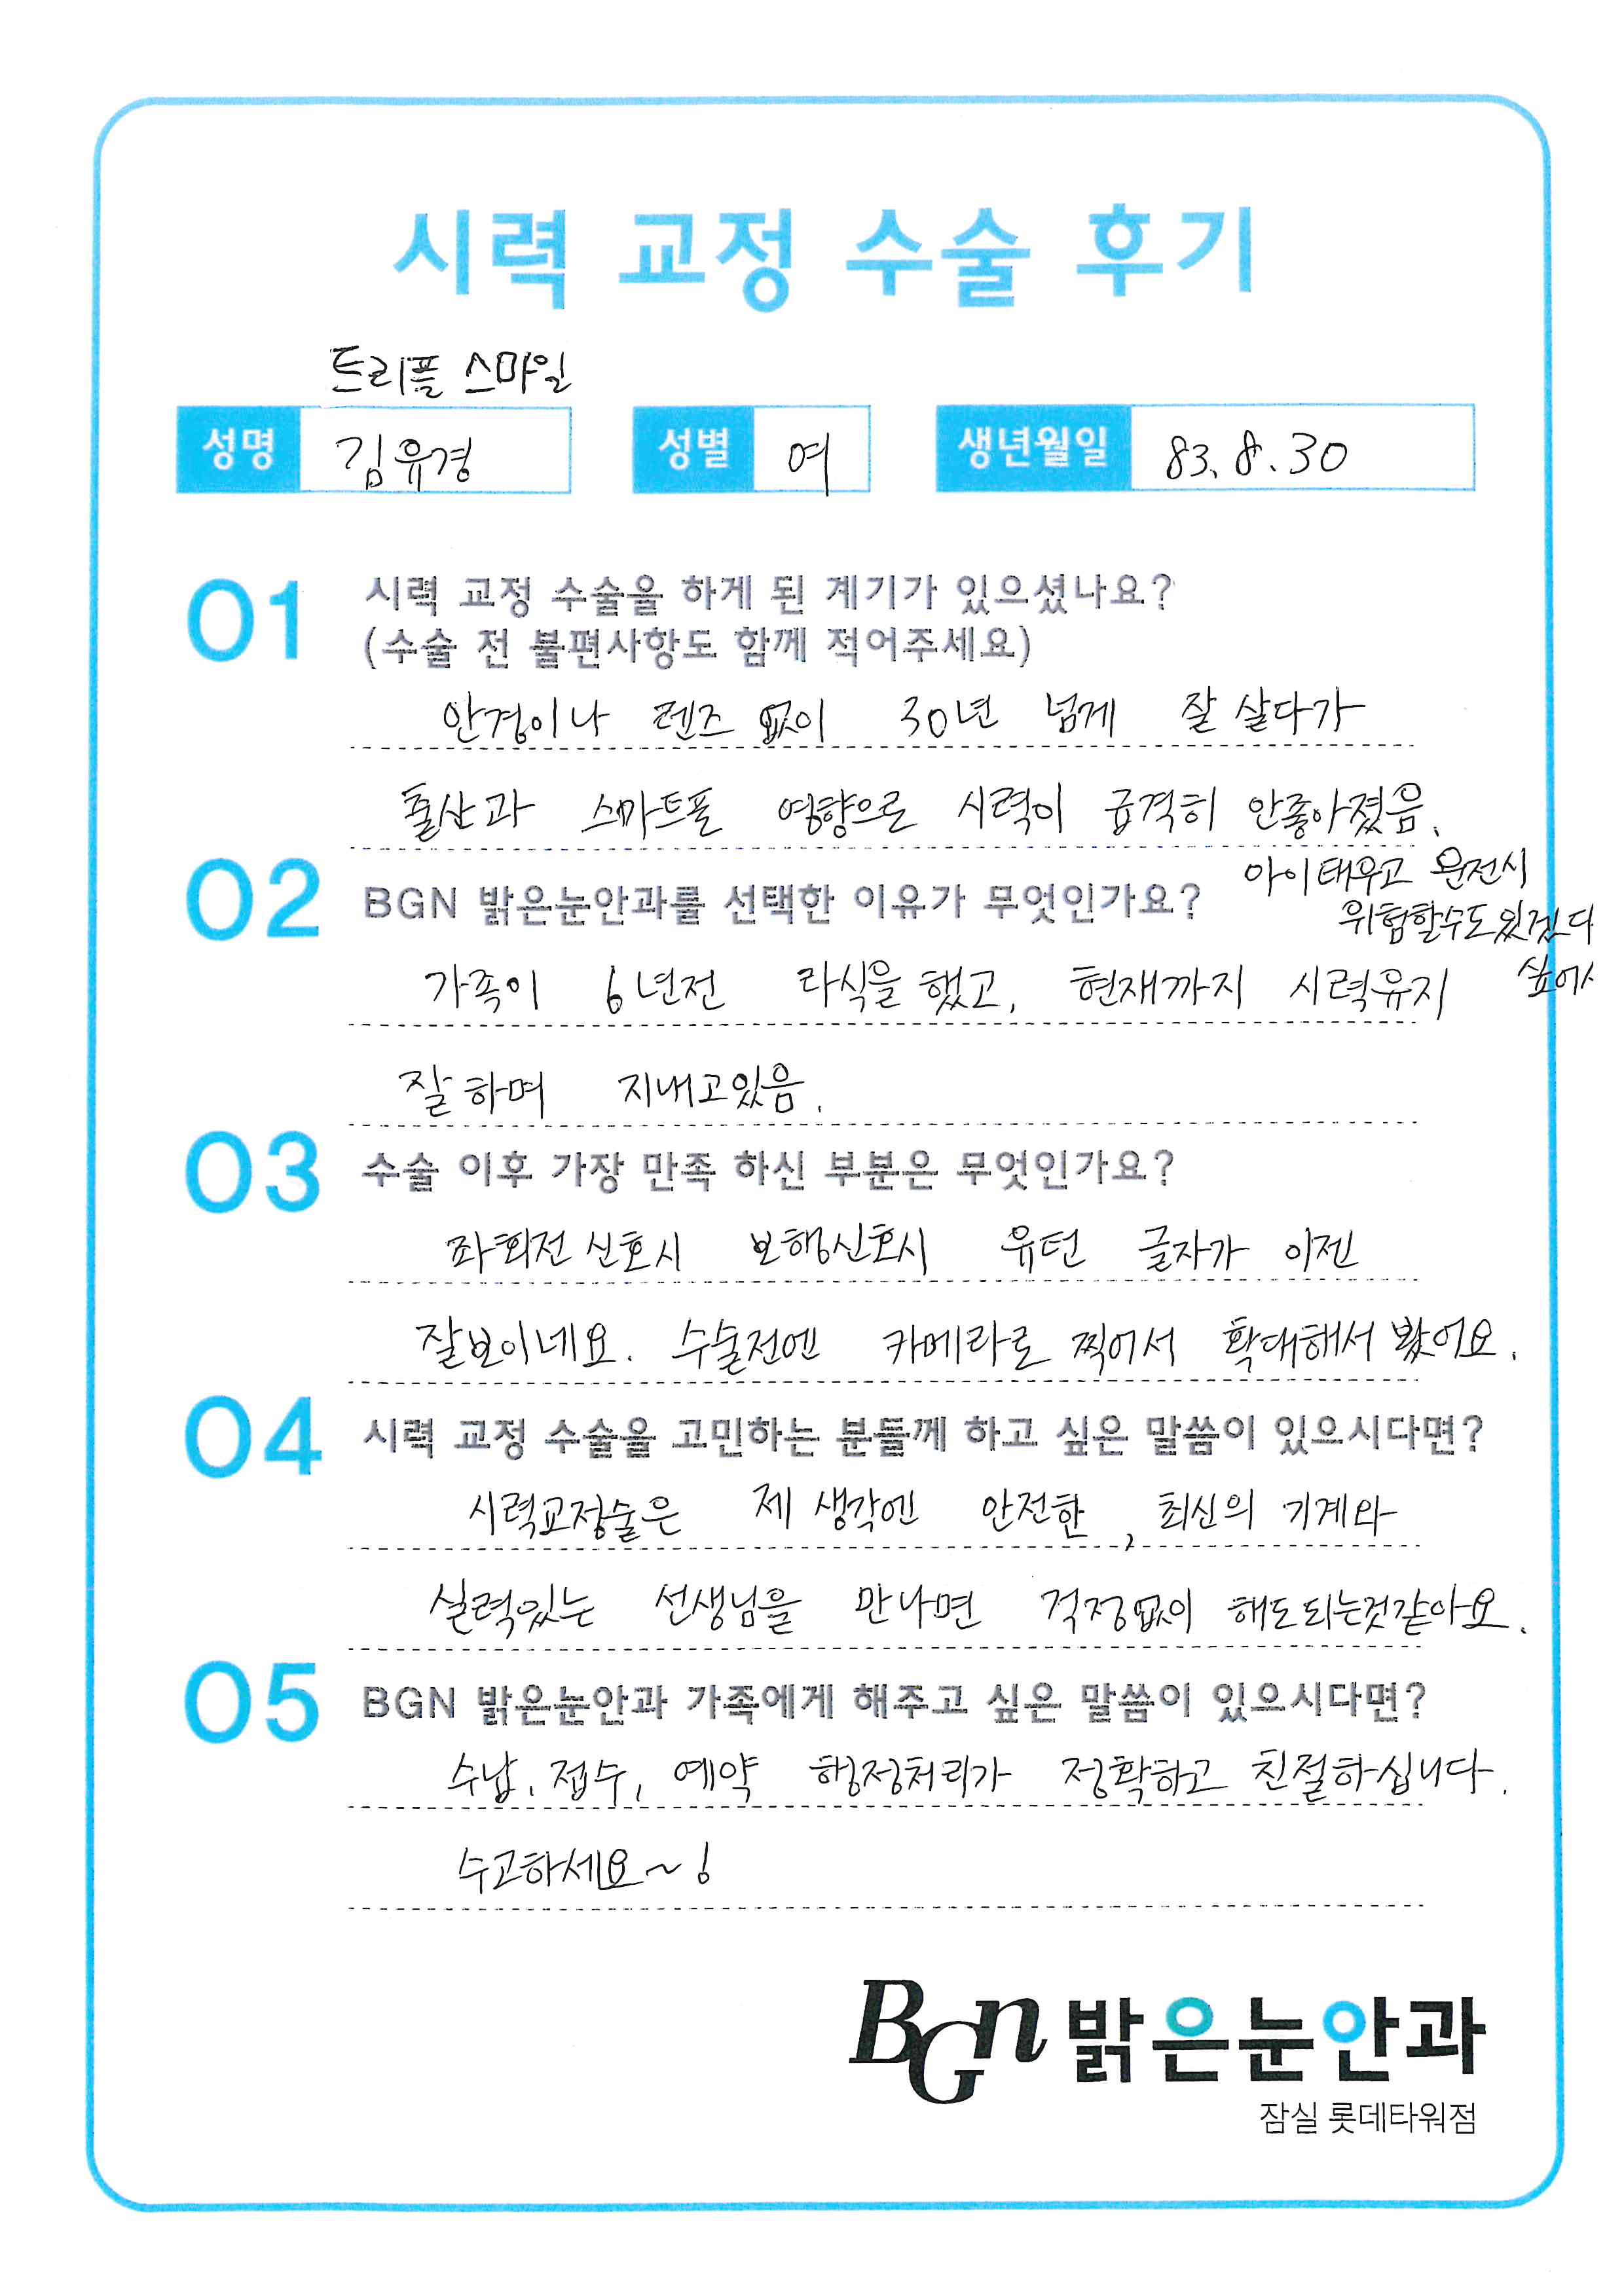 시력 교정 수술 후기
트리플 스마일
성명 김유경 성별 여 생년월일 83. 8. 30
01 시력 교정 수술을 하게 된 계기가 있으셨나요?
(수술 전 불편사항도 함께 적어주세요)
안경이나 렌즈 없이 30년 넘게 잘 살다가
출산과 스마트폰 영향으로 시력이 급격히 안좋아졌음.
아이 태우고 운전시
위험할수도 있겠다
싶어서
02 BGN 밝은눈안과를 선택한 이유가 무엇인가요?
가족이 6년전 라식을 했고, 현재까지 시력유지
잘 하며 지내고있음.
03 수술 이후 가장 만족 하신 부분은 무엇인가요?
좌회전 신호시 보행신호시 유턴 글자가 이젠
잘보이네요. 수술전엔 카메라로 찍어서 확대해서 봤어요.
04 시력 교정 수술을 고민하는 분들께 하고 싶은 말씀이 있으시다면?
시력교정술은 제 생각엔 안전한, 최신의 기계와
실력있는 선생님을 만나면 걱정없이 해도되는것같아요.
05 BGN 밝은눈안과 가족에게 해주고 싶은 말씀이 있으시다면?
수납, 접수, 예약 행정처리가 정확하고 친절하십니다.
수고하세요~!
BGN 밝은눈안과
잠실 롯데타워점